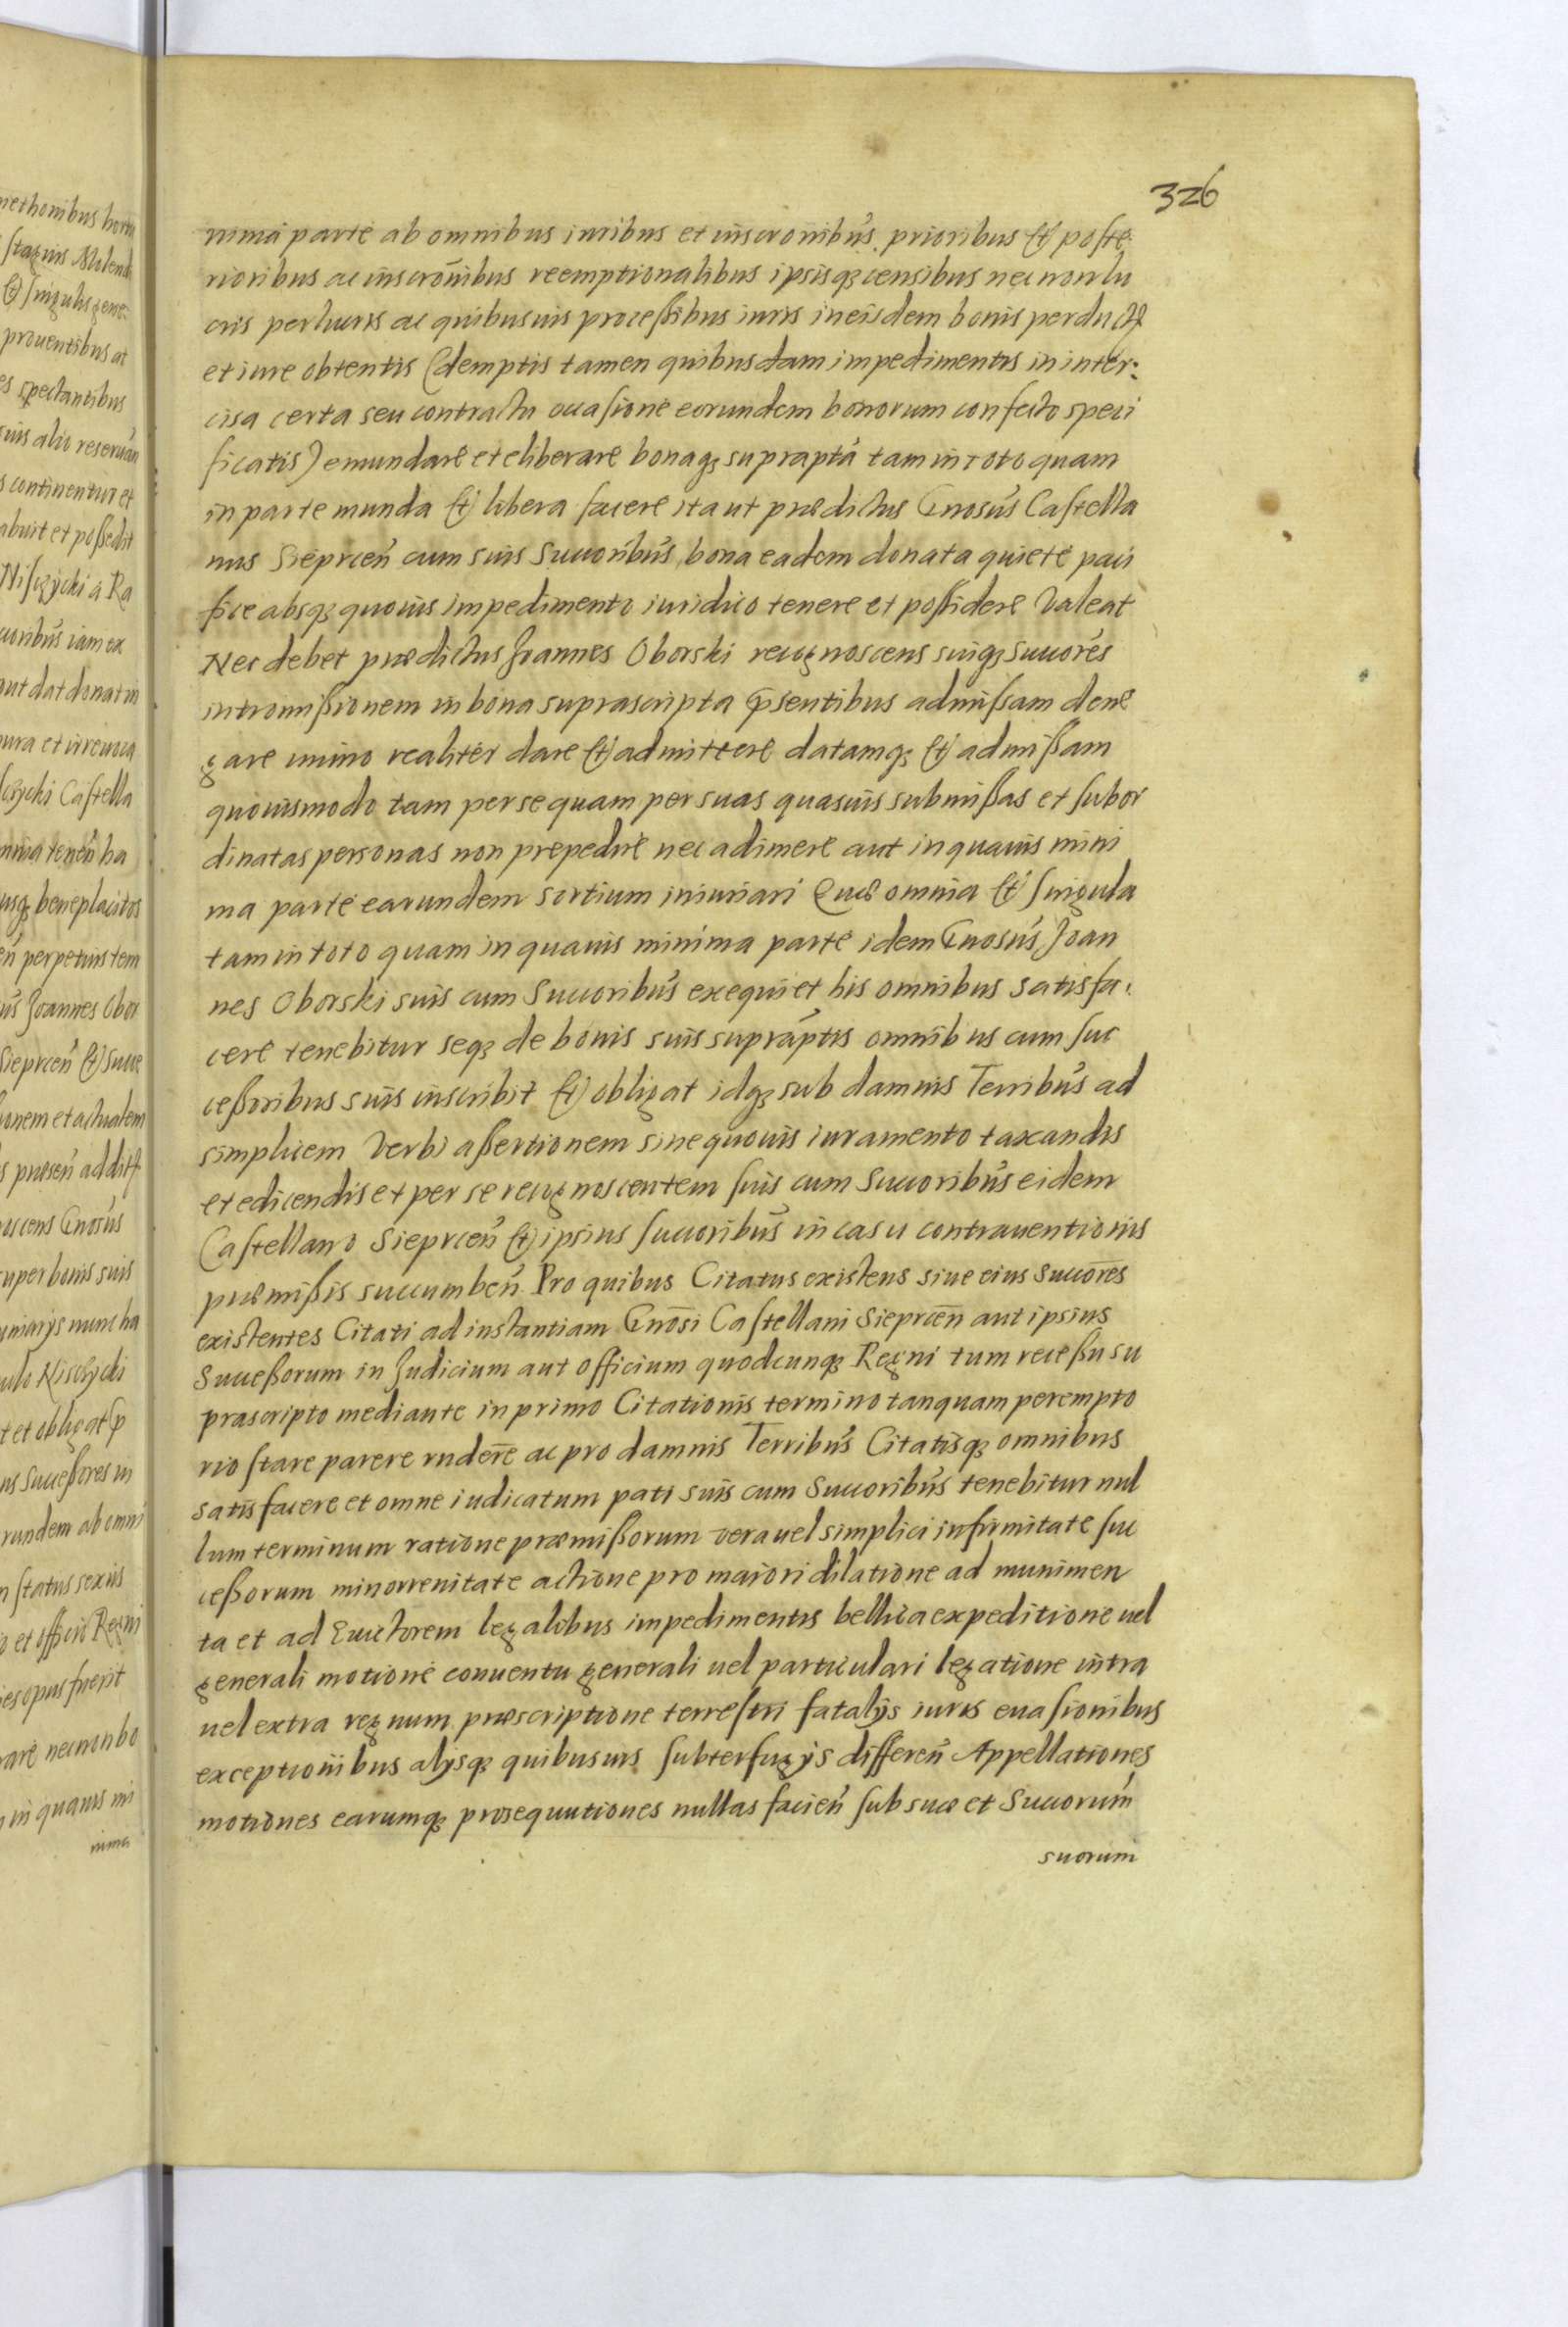 326
nethonibus hortu
stagnis Molend
et singulis gene:
prouentibus at
es spectantibus
suis alio reseruan
s continentur et
abuit et possedit
Nisczycki a Ra
uoribus iam ex
aut dat donat in
pura et irreuoca
sczycki Castella
mnia tenen̄ ha
usq; beneplacitos
en̄ perpetuis tem
us Joannes Obor
Sieprcen̄ et succe
ionem et actualem
s præsen̄ addit
oscens Gnosus
super bonis suis
uniarijs nunc ha
ulo Nisczycki
t et obligat
us successores in
rundem ab omni
n status sexus
o et officio Regni
ies opus fuerit
rare nec non bo
in quauis mi
nima
nima parte ab omnibus iuribus et inscronibus prioribus et poste
rioribus ac inscrōnibus reemptionalibus ipsisq; censibus nec non lu
cris perlucris ac quibusuis processibus iuris in eisdem bonis perductis
et iure obtentis (demptis tamen quibusdam impedimentis in inter:
cisa certa seu contractu occasione eorundem bonorum confecto speci
ficatis) emundare et eliberare bonaq; supraptā tam in toto quam
in parte munda et libera facere ita ut prædictus Gnosus Castella
nus Sieprcen̄ cum suis Succoribus bona eadem donata quiete paci
fice absq; quouis impedimento iuridico tenere et possidere valeat
Nec debet prædictus Joannes Oborski recognoscens suiq; Succores
intromissionem in bona suprascripta p̄sentibus admissam dene
gare immo realiter dare et admittere datamq; et admissam
quouismodo tam per se quam per suas quasuis submissas et subor
dinatas personas non prepedire nec adimere aut in quauis mini
ma parte earundem sortium iniuriari Quæ omnia et singula
tam in toto quam in quauis minima parte idem Gnosus Joan
nes Oborski suis cum Succoribus exequi et his omnibus satisfa:
cere tenebitur seq; de bonis suis supraptis omnibus cum suc
cessoribus suis inscribit et obligat idq; sub damnis Terribus ad
simplicem verbi assertionem sine quouis iuramento taxandis
et edicendis et per se recognoscentem suis cum Succoribus eidem
Castellano Sieprcen̄ et ipsius succoribus in casu contrauentionis
præmissis succumben̄ Pro quibus Citatus existens siue eius Succores
existentes Citati ad instantiam Gnōsi Castellani Sieprcen̄ aut ipsius
Successorum in Judicium aut officium quodcunq; Regni tum recessu su
prascripto mediante in primo Citationis termino tanquam perempto
rio stare parere rndere ac pro damnis Terribus Citatisq; omnibus
satisfacere et omne iudicatum pati suis cum Succoribus tenebitur nul
lum terminum ratione præmissorum vera uel simplici infirmitate suc
cessorum minorrenitate actione pro maiori dilatione ad munimen
ta et ad Euictorem legalibus impedimentis bellica expeditione uel
generali motione conuentu generali uel particulari legatione intra
uel extra regnum præscriptione terrestri fatalijs iuris euasionibus
exceptionibus alijsq; quibusuis subterfugijs differen̄ Appellationes
motiones earumq; prosequutiones nullas facien̄ sub suæ et Succorum
suorum